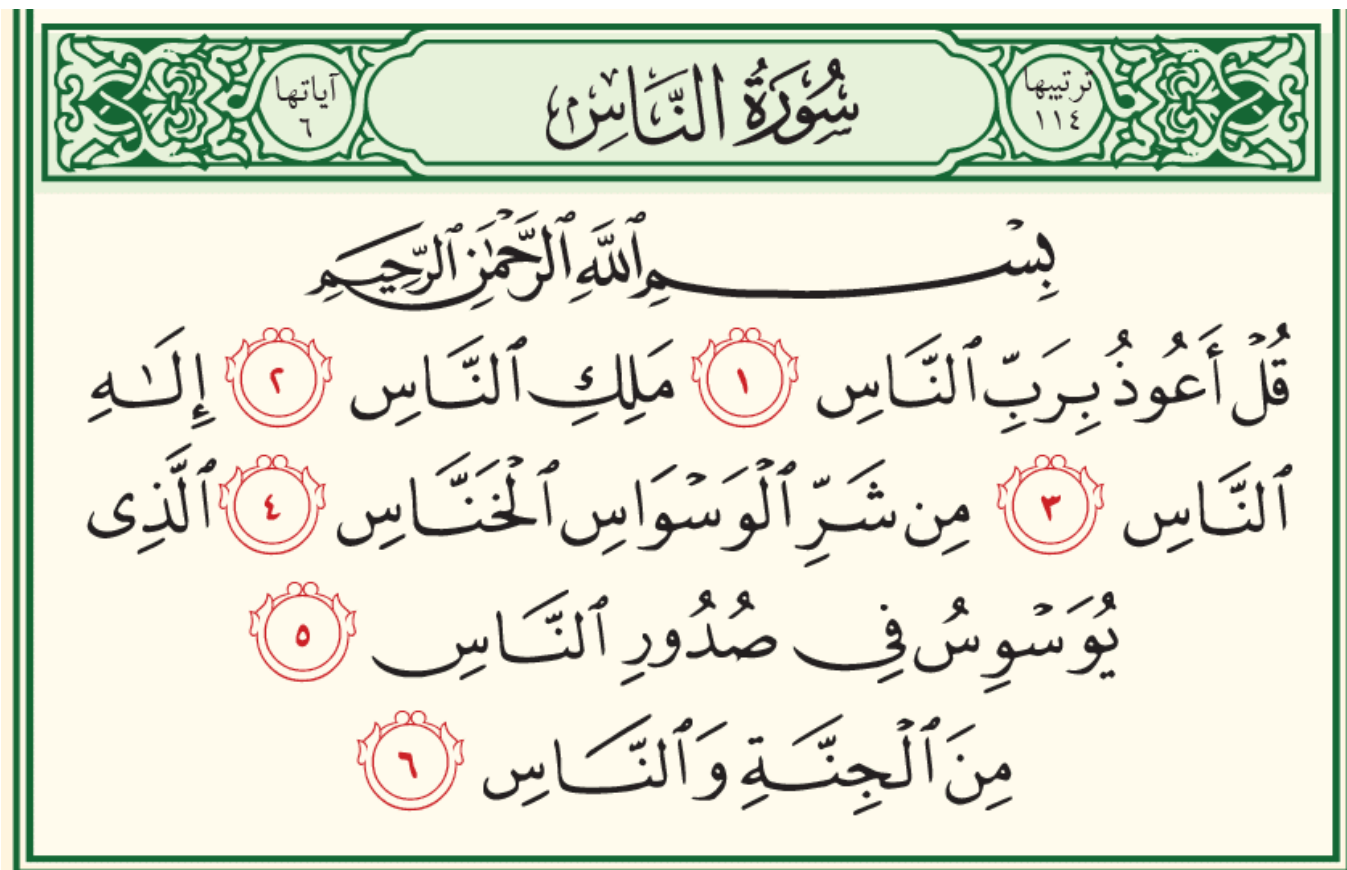 ترتيبها
١١٤
سُورَةُ النَّاسِ
آياتها
٦
بِسْمِ ٱللَّهِ ٱلرَّحْمَٰنِ ٱلرَّحِيمِ
قُلْ أَعُوذُ بِرَبِّ ٱلنَّاسِ ١ مَلِكِ ٱلنَّاسِ ٢ إِلَٰهِ
ٱلنَّاسِ ٣ مِن شَرِّ ٱلْوَسْوَاسِ ٱلْخَنَّاسِ ٤ ٱلَّذِى
يُوَسْوِسُ فِى صُدُورِ ٱلنَّاسِ ٥
مِنَ ٱلْجِنَّةِ وَٱلنَّاسِ ٦